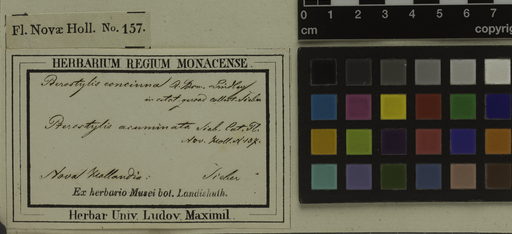 Fl. Novæ Holl. No. 157.
HERBARIUM REGIUM MONACENSE.
Pterostylis concinna R. Brown. Lindley
in
Pterostylis acuminata Sieb. Cat. Fl.
Nov. Holl. N. 157.
Nova Hollandia: Sieber
Ex herbario Musei bot. Landishuth.
Herbar Univ. Ludov. Maximil.
0 1 2 3 4 5 6 7
cm copyrig